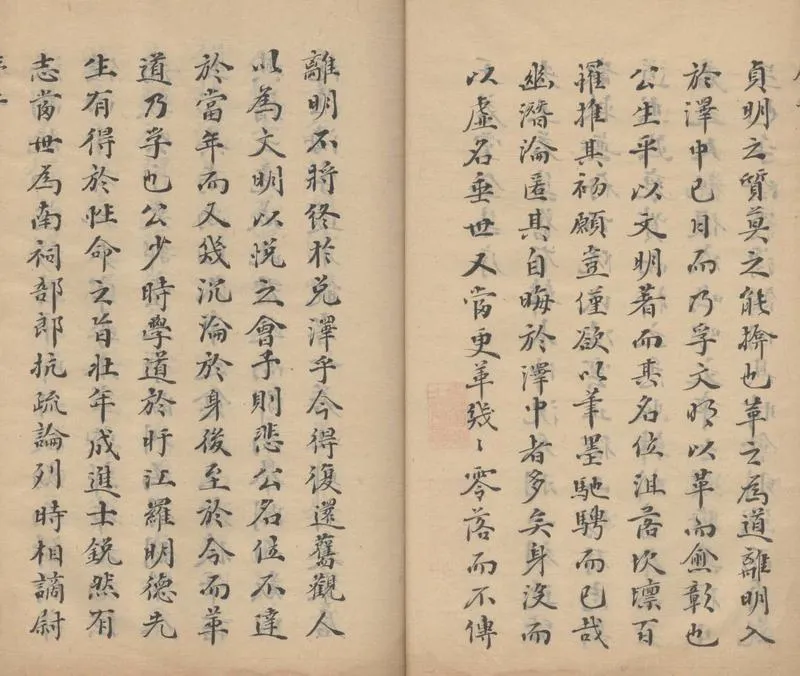 貞明之質莫之能揜也革之為道離明入
於澤中已日而乃孚文明以革而愈彰也
公生平以文明著而其名位沮落坎壈百
罹推其初願豈僅欲以筆墨馳騁而已哉
幽潛淪匿其自晦於澤中者多矣身沒而
以虛名垂世又當更革幾〻零落而不傳
離明不將終於兌澤乎今得復還舊觀人
以為文明以悅之會予則悲公名位不達
於當年而又幾沉淪於身後至於今而革
道乃孚也公少時學道於旴江羅明德先
生有得於性命之旨壯年成進士銳然有
志當世為南祠部郎抗疏論列時相謫尉